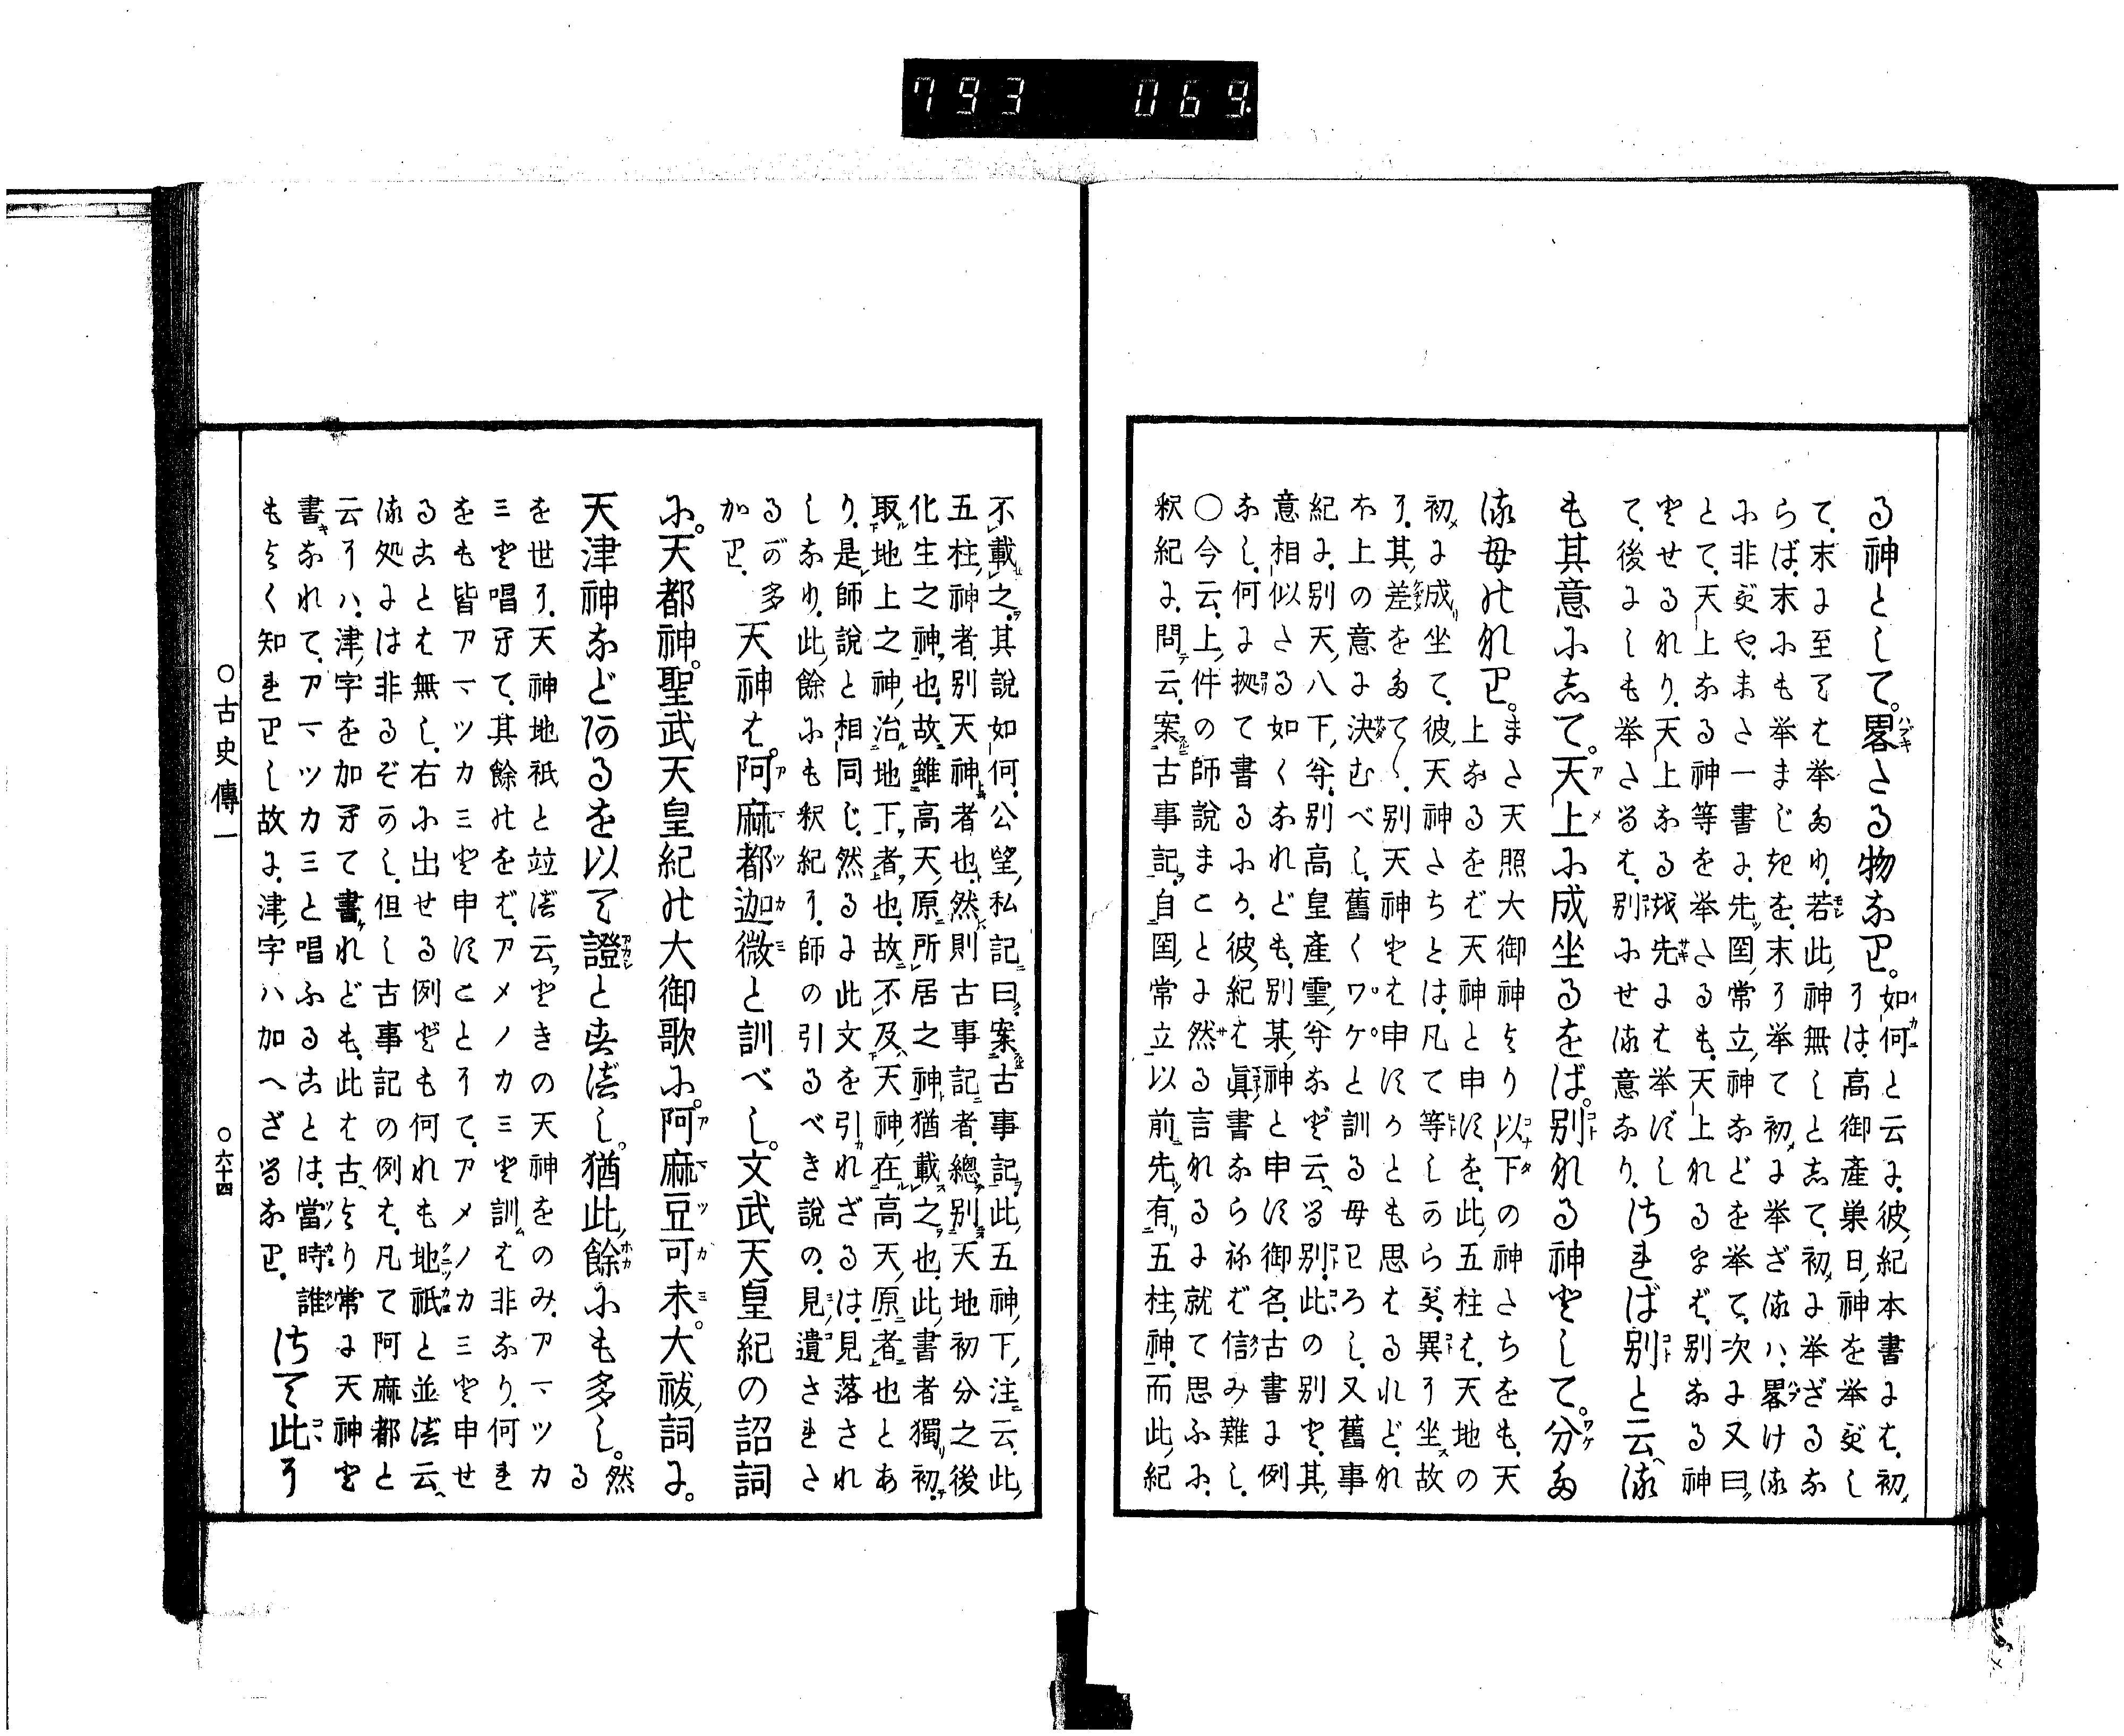 793 069.
る神として。畧たる物なり。如何と云に、彼紀本書には、初
には、高御產巢日神を举ずし
て、末に至ては举たり、若此神無しとして、初に举ざるな
らば、末にも举まじきを、末に举て初に举ざるハ、畧ける
に非ずや、また一書に、先国常立神などを举て、次に又曰
とて、天上なる神等を举たるも、天上れるなど、別なる神
とせるれり、天上なる故先には举ずし
て、後にしも举たるは、別にせる意なり、されば別と云る
も其意にして。天上に成坐るをば。別れる神として。分た
る毋れり。また天照大御神より以下の神たちをも、天
上なるをば天神と申すを、此五柱は、天地の
初に成坐て、彼天神たちとは、凡て等しからず、異に坐故
に、其差をたてゝ、別天神とは申すかとも思はるれど、れ
ほ上の意に決むべし、舊くワケと訓る毋わろし、又舊事
紀に、別天八下尊、別高皇產靈尊など云る別、此の別と、其
意相似たる如くなれども、別某神と申す御名、古書に例
なし、何に拠て書るにか、彼紀は眞書ならねば信み難し、
○今云、上件の師說まことに然る言れるに就て思ふに、
釈紀に、問云、案古事記、自国常立以前、先有五柱神、而此紀
不載之、其說如何、公望私記曰、案古事記、此五神下注云、此
五柱神者、別天神者也、然則古事記者、總別天地初分之後
化生之神也、故雖高天原所居之神、猶載之也、此書者獨初
取地上之神、治地下者也、故不及天神在高天原者也とあ
り、是師說と相同じ、然るに此文を引れざるは、見落され
しなり、此餘にも釈紀に、師の引るべき說の、見遺された
るが多
かり、天神は。阿麻都迦微と訓べし。文武天皇紀の詔詞
に。天都神。聖武天皇紀の大御歌に。阿麻豆可未。大祓詞に。
天津神などあるを以て證とすべし。猶此餘にも多し。然
る
を世に、天神地祇と竝べ云ときの天神をのみ、アマツカ
ミと唱そて、其餘のをば、アメノカミと訓は非なり、何れ
をも皆アマツカミと申すことにて、アメノカミと申せ
ることは無し、右に出せる例ども何れも地祇と並べ云
る処には非るぞかし、但し古事記の例は、凡て阿麻都と
云には、津字を加そて書れども、此は古より常に天神と
書なれて、アマツカミと唱ふることは、當時誰
もよく知れりし故に、津字ハ加へざるなり、さて此に
○古史傳一
○六十四